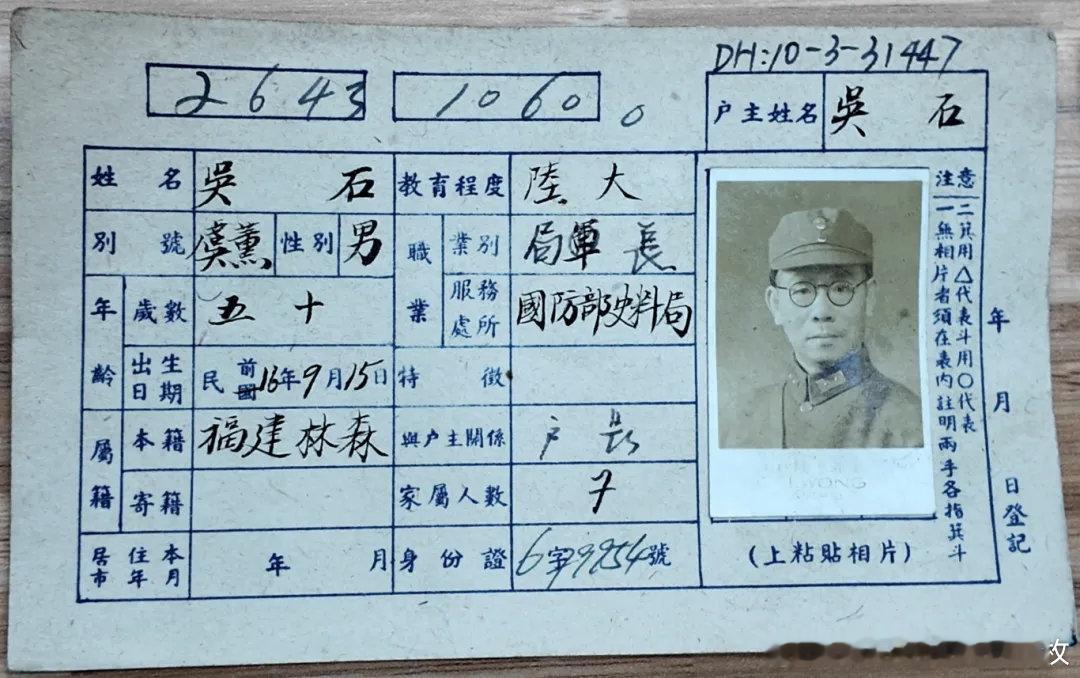 DH:10-3-31447
2643 1060 0
户主姓名 吳石
姓名 吳石 教育程度 陸大
別號 虞薰 性別 男 職業 業別 軍 局長
年齡 歲數 五十 服務處所 國防部史料局
出生日期 民前國16年9月15日 特徵
屬籍 本籍 福建林森 與户主關係 户長
寄籍 家屬人數 7
居住本市年月 年 月 身份證 6字9254號
(上粘貼相片)
注意
一無相片者須在表內註明兩手各指箕斗
二箕用△代表斗用○代表
年 月 日登記
WONG